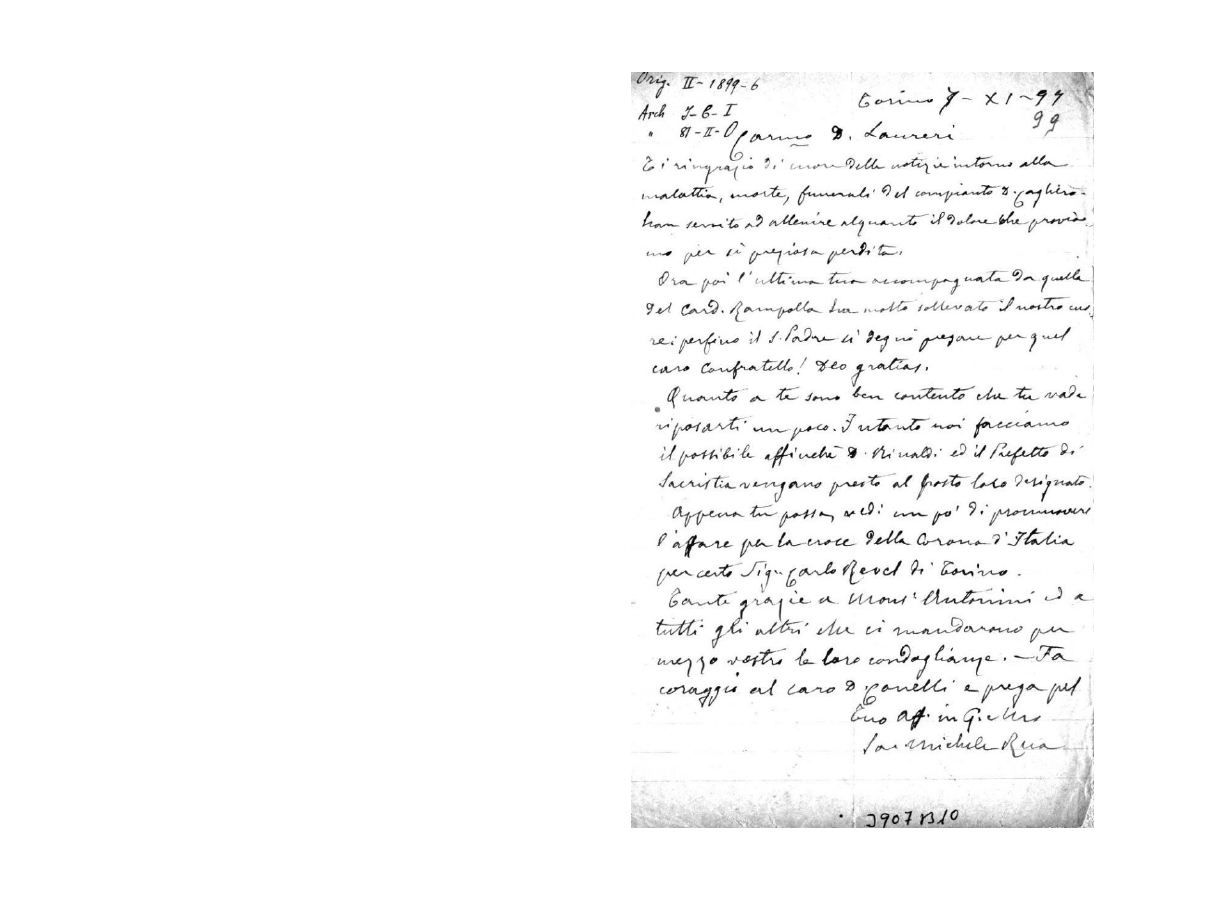 Orig. II - 1899 - 6
Torino 7 - XI - 97
Arch J-B-I
99
" 81-II-O
Carmo D. Laureri
Ti ringrazio di cuore delle notizie intorno alla
malattia, morte, funerali del compianto D. Cagliero.
han servito ad allenire alquanto il dolore che provia-
mo per sì preziosa perdita.
Ora poi l'ultima tua accompagnata da quella
del Card. Rampolla ha molto sollevato il nostro cuo-
re: perfino il S. Padre si degnò pregare per quel
caro Confratello! Deo gratias.
Quanto a te sono ben contento che tu vada
riposarti un poco. Intanto noi facciamo
il possibile affinchè D. Rinaldi ed il Prefetto di
Sacristia vengano presto al posto loro designato.
Appena tu possa, vedi un po' di promuovere
l'affare per la croce della Corona d'Italia
per certo Sigr Carlo Revel di Torino.
Tante grazie a Monsr Antonini ed a
tutti gli altri che ci mandarono per
mezzo vostro le loro condoglianze. - Fa
coraggio al caro D. Conelli e prega pel
Tuo aff. in G. e Mra
Sac Michele Rua
J907B10